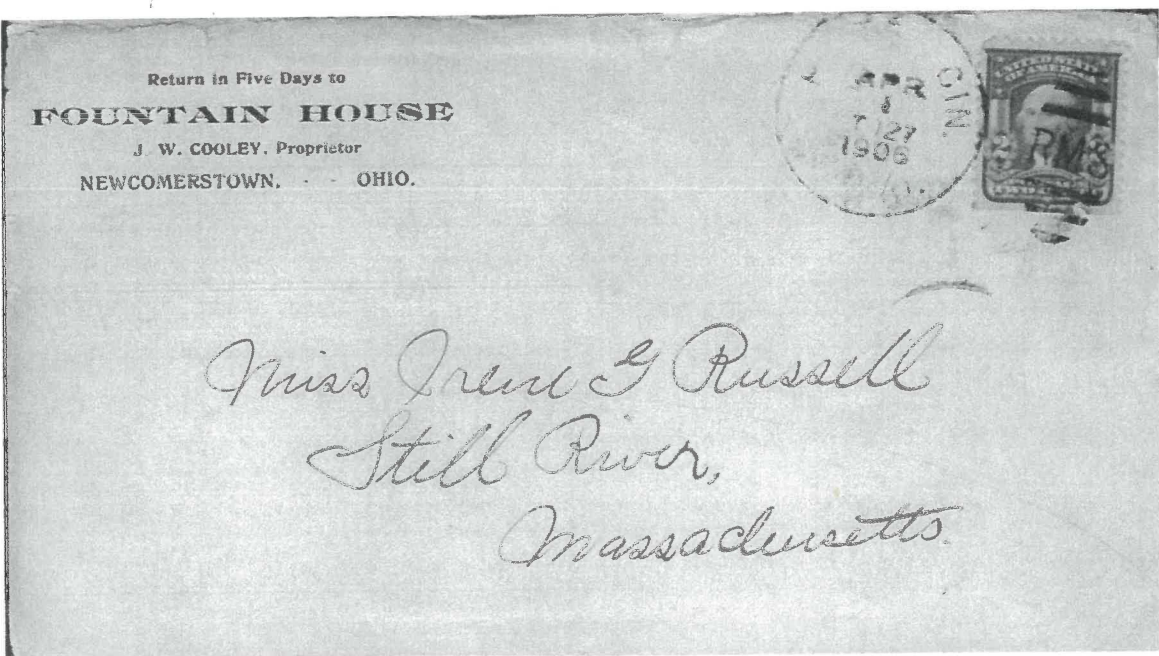 Return in Five Days to
FOUNTAIN HOUSE
J. W. COOLEY, Proprietor
NEWCOMERSTOWN, - - OHIO.
CIN.
APR
1
1906
2 2
Miss Irene G Russell
Still River,
Massachusetts.